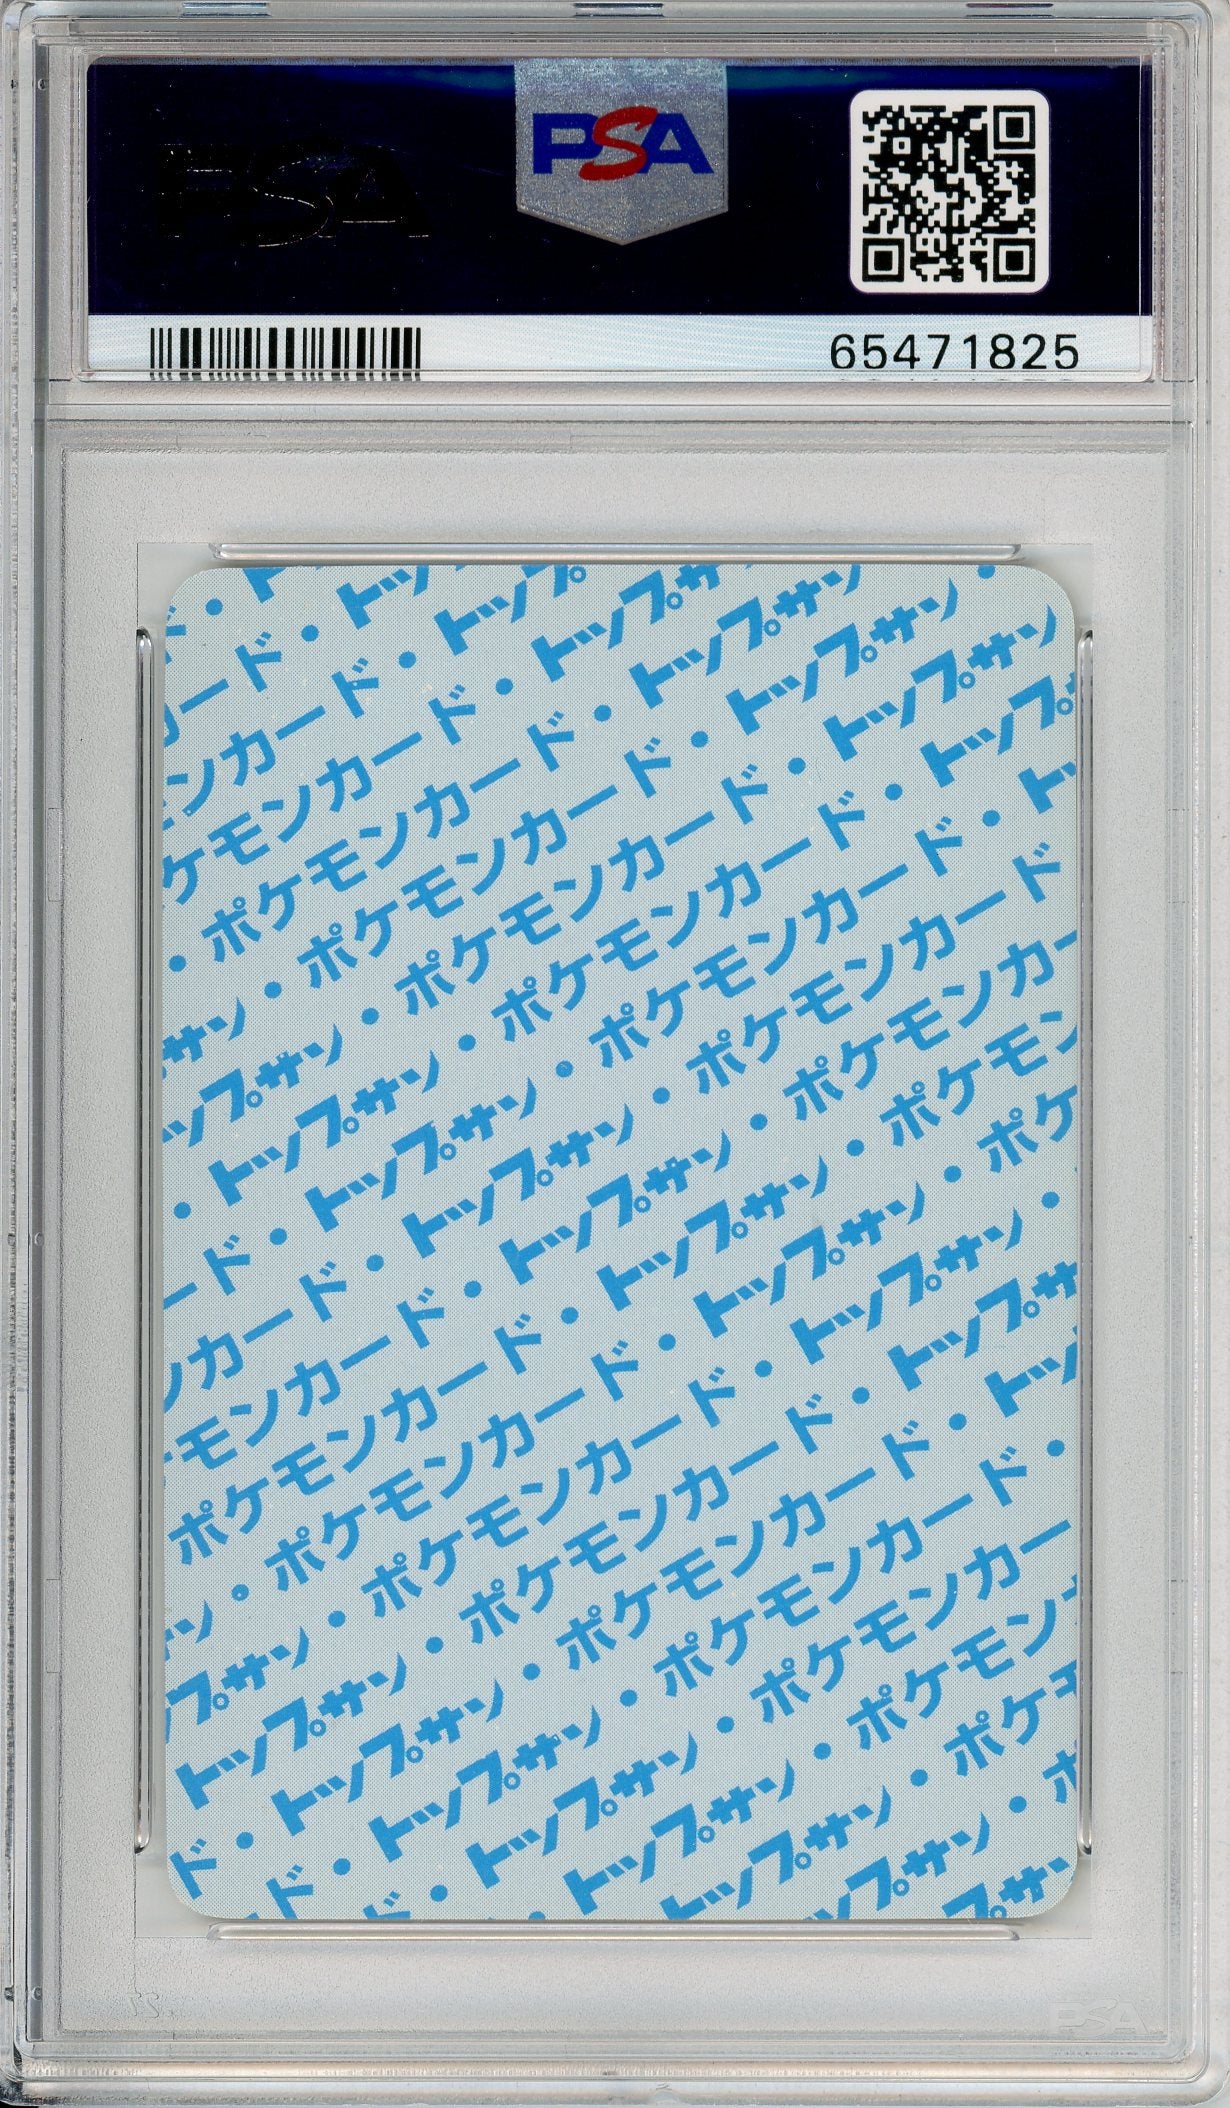 PSA
PSA
65471825
ド・ト
カード・トッ
ンカード・トップ
ケモンカード・トップサ
・ポケモンカード・トップサン
サン・ポケモンカード・トップサン・
ップサン・ポケモンカード・トップサン
・トップサン・ポケモンカード・トップ
ード・トップサン・ポケモンカード・トッ
ンカード・トップサン・ポケモンカード
モンカード・トップサン・ポケモンカー
ポケモンカード・トップサン・ポケモン
ン・ポケモンカード・トップサン・ポケ
プサン・ポケモンカード・トップサン・
トップサン・ポケモンカード・トップサ
ド・トップサン・ポケモンカード・トッ
ド・トップサン・ポケモンカード・
ド・トップサン・ポケモンカー
トップサン・ポケモン
トップサン・ポケモ
プサン・ポ
プサ
PSA